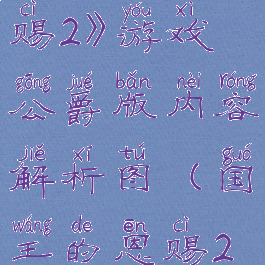 cì yóu xì
赐2》游戏
gōng jué bǎn nèi róng
公爵版内容
jiě xī tú guó
解析图（国
wáng de ēn cì
王的恩赐2